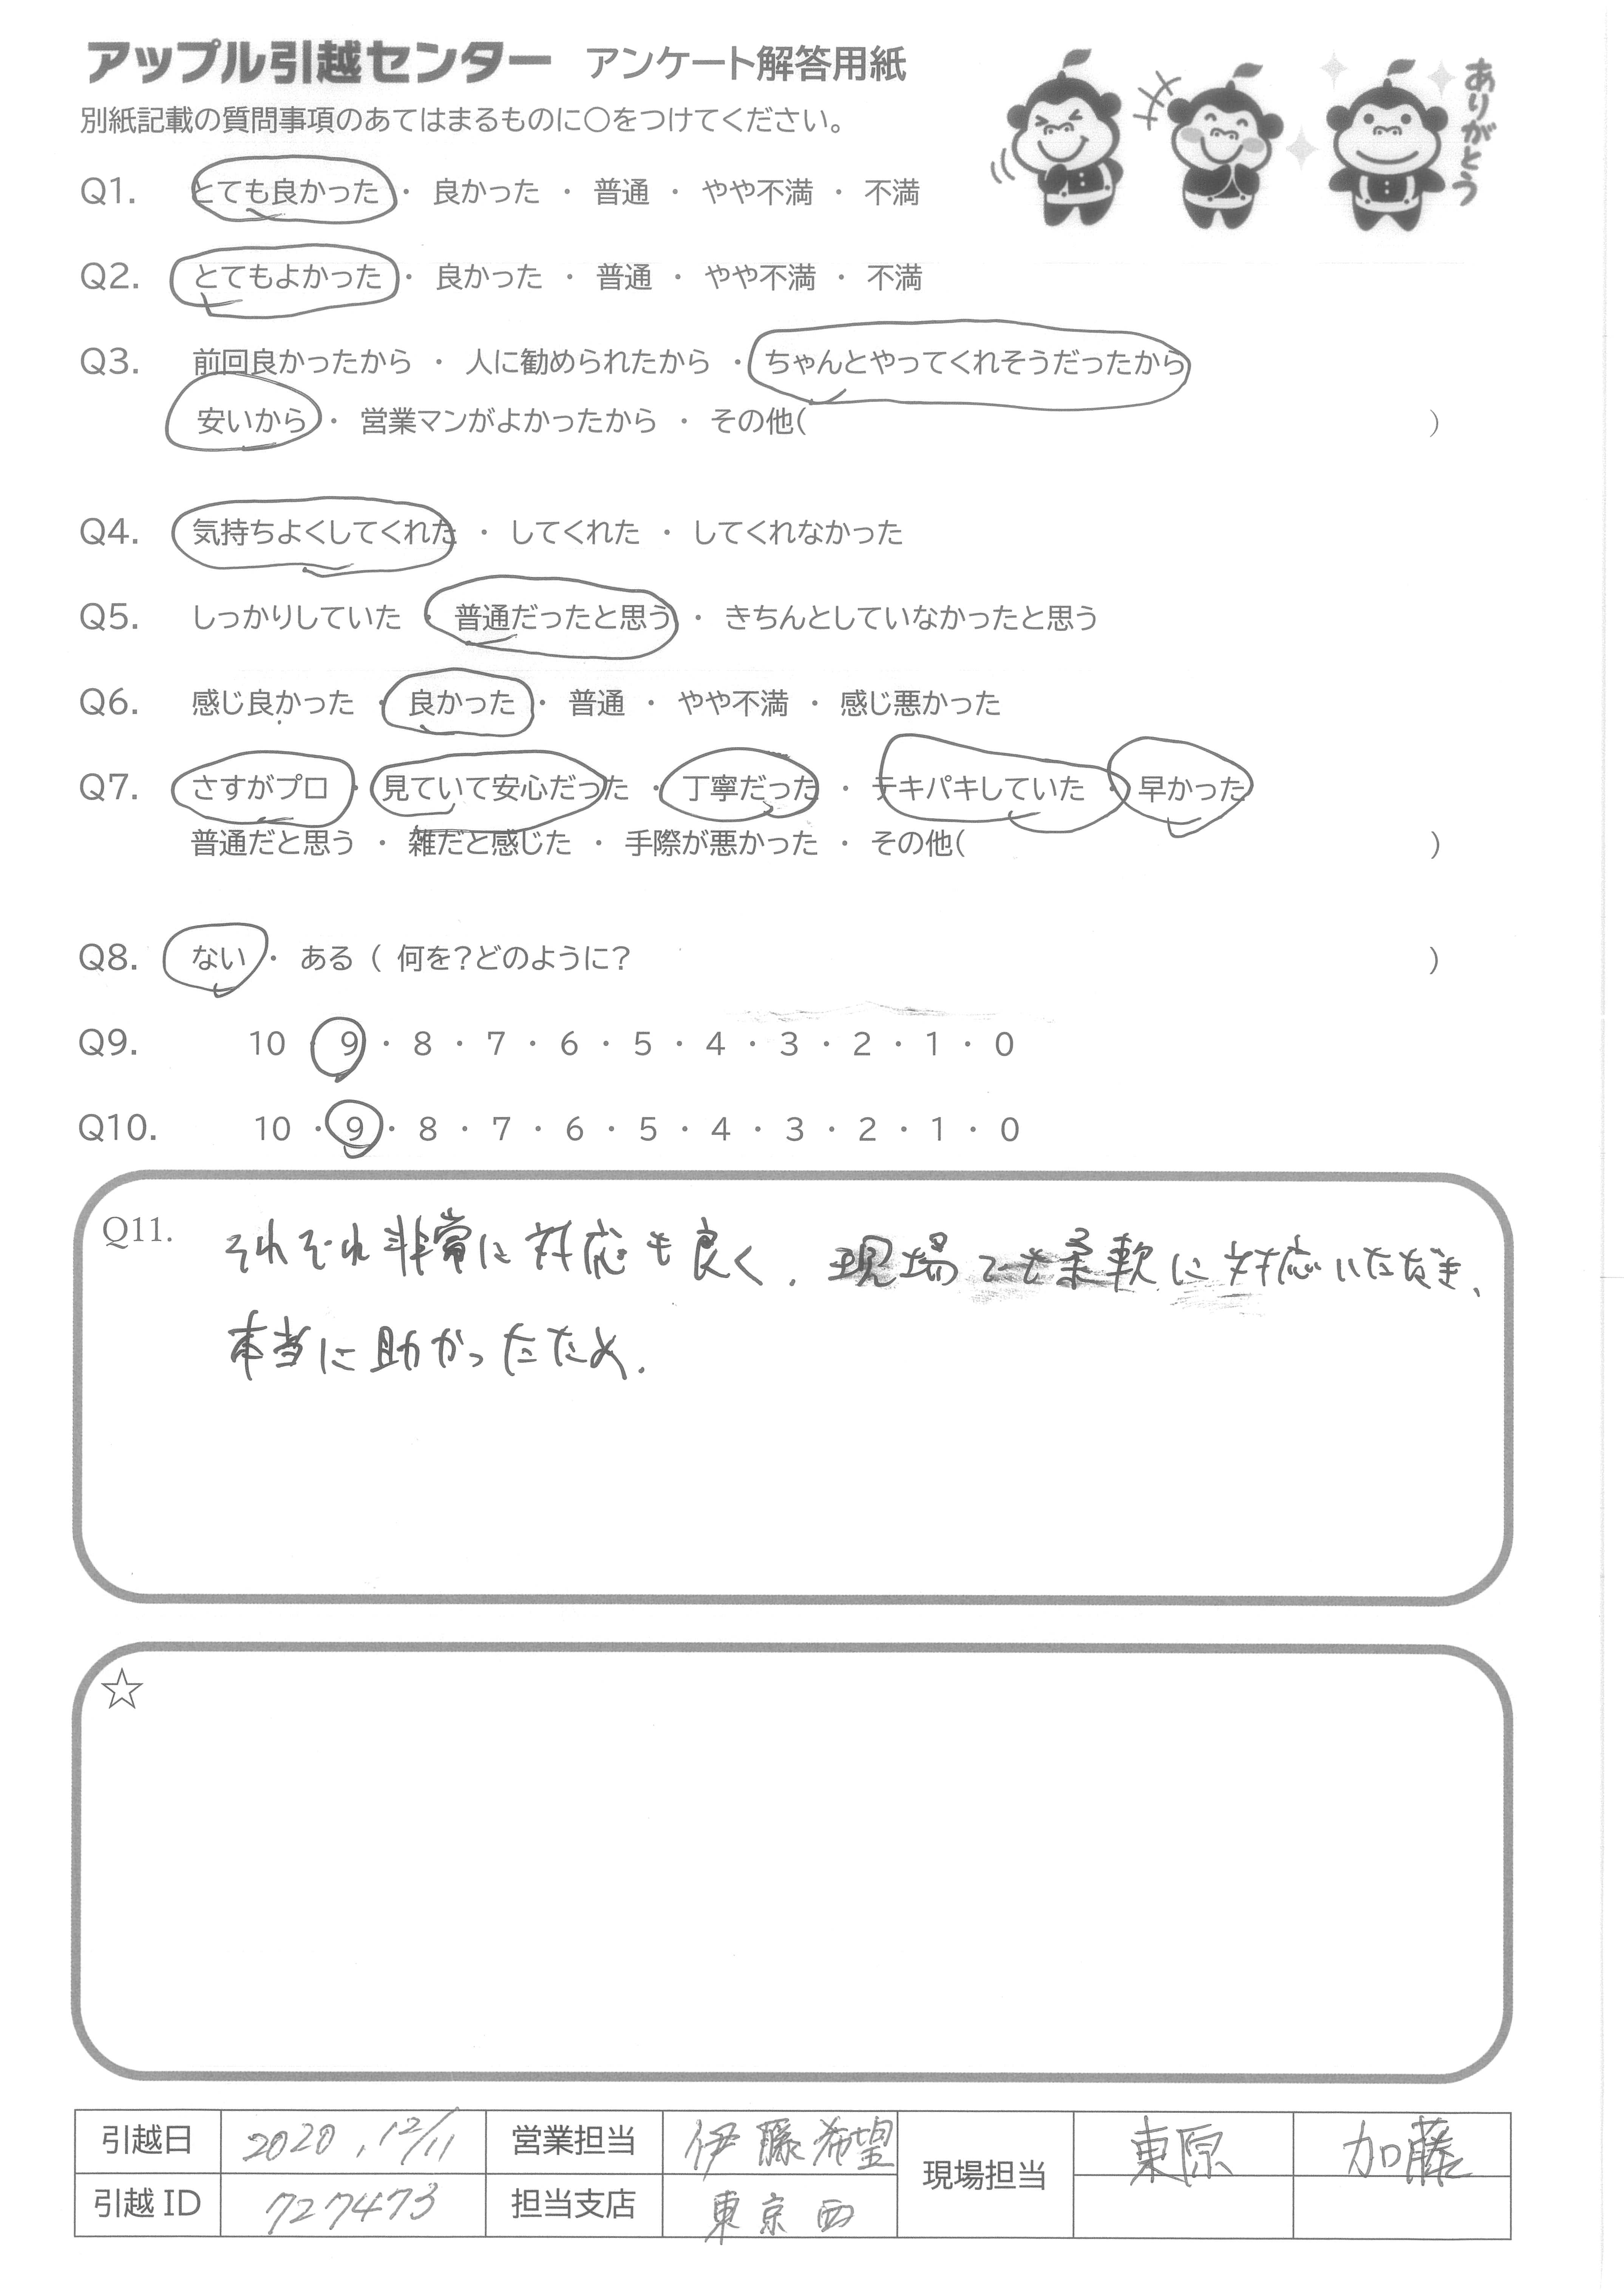 アップル引越センター アンケート解答用紙
ありがとう
別紙記載の質問事項のあてはまるものに○をつけてください。
Q1. とても良かった ・ 良かった ・ 普通 ・ やや不満 ・ 不満
Q2. とてもよかった ・ 良かった ・ 普通 ・ やや不満 ・ 不満
Q3. 前回良かったから ・ 人に勧められたから ・ ちゃんとやってくれそうだったから
安いから ・ 営業マンがよかったから ・ その他( )
Q4. 気持ちよくしてくれた ・ してくれた ・ してくれなかった
Q5. しっかりしていた ・ 普通だったと思う ・ きちんとしていなかったと思う
Q6. 感じ良かった ・ 良かった ・ 普通 ・ やや不満 ・ 感じ悪かった
Q7. さすがプロ ・ 見ていて安心だった ・ 丁寧だった ・ テキパキしていた ・ 早かった
普通だと思う ・ 雑だと感じた ・ 手際が悪かった ・ その他( )
Q8. ない ・ ある ( 何を?どのように? )
Q9. 10 ・ 9 ・ 8 ・ 7 ・ 6 ・ 5 ・ 4 ・ 3 ・ 2 ・ 1 ・ 0
Q10. 10 ・ 9 ・ 8 ・ 7 ・ 6 ・ 5 ・ 4 ・ 3 ・ 2 ・ 1 ・ 0
Q11. それぞれ非常に対応も良く、現場でも柔軟に対応いただき、
本当に助かったため.
☆
引越日 2020.12/11 営業担当 伊藤希望 現場担当 東原 加藤
引越ID 727473 担当支店 東京西